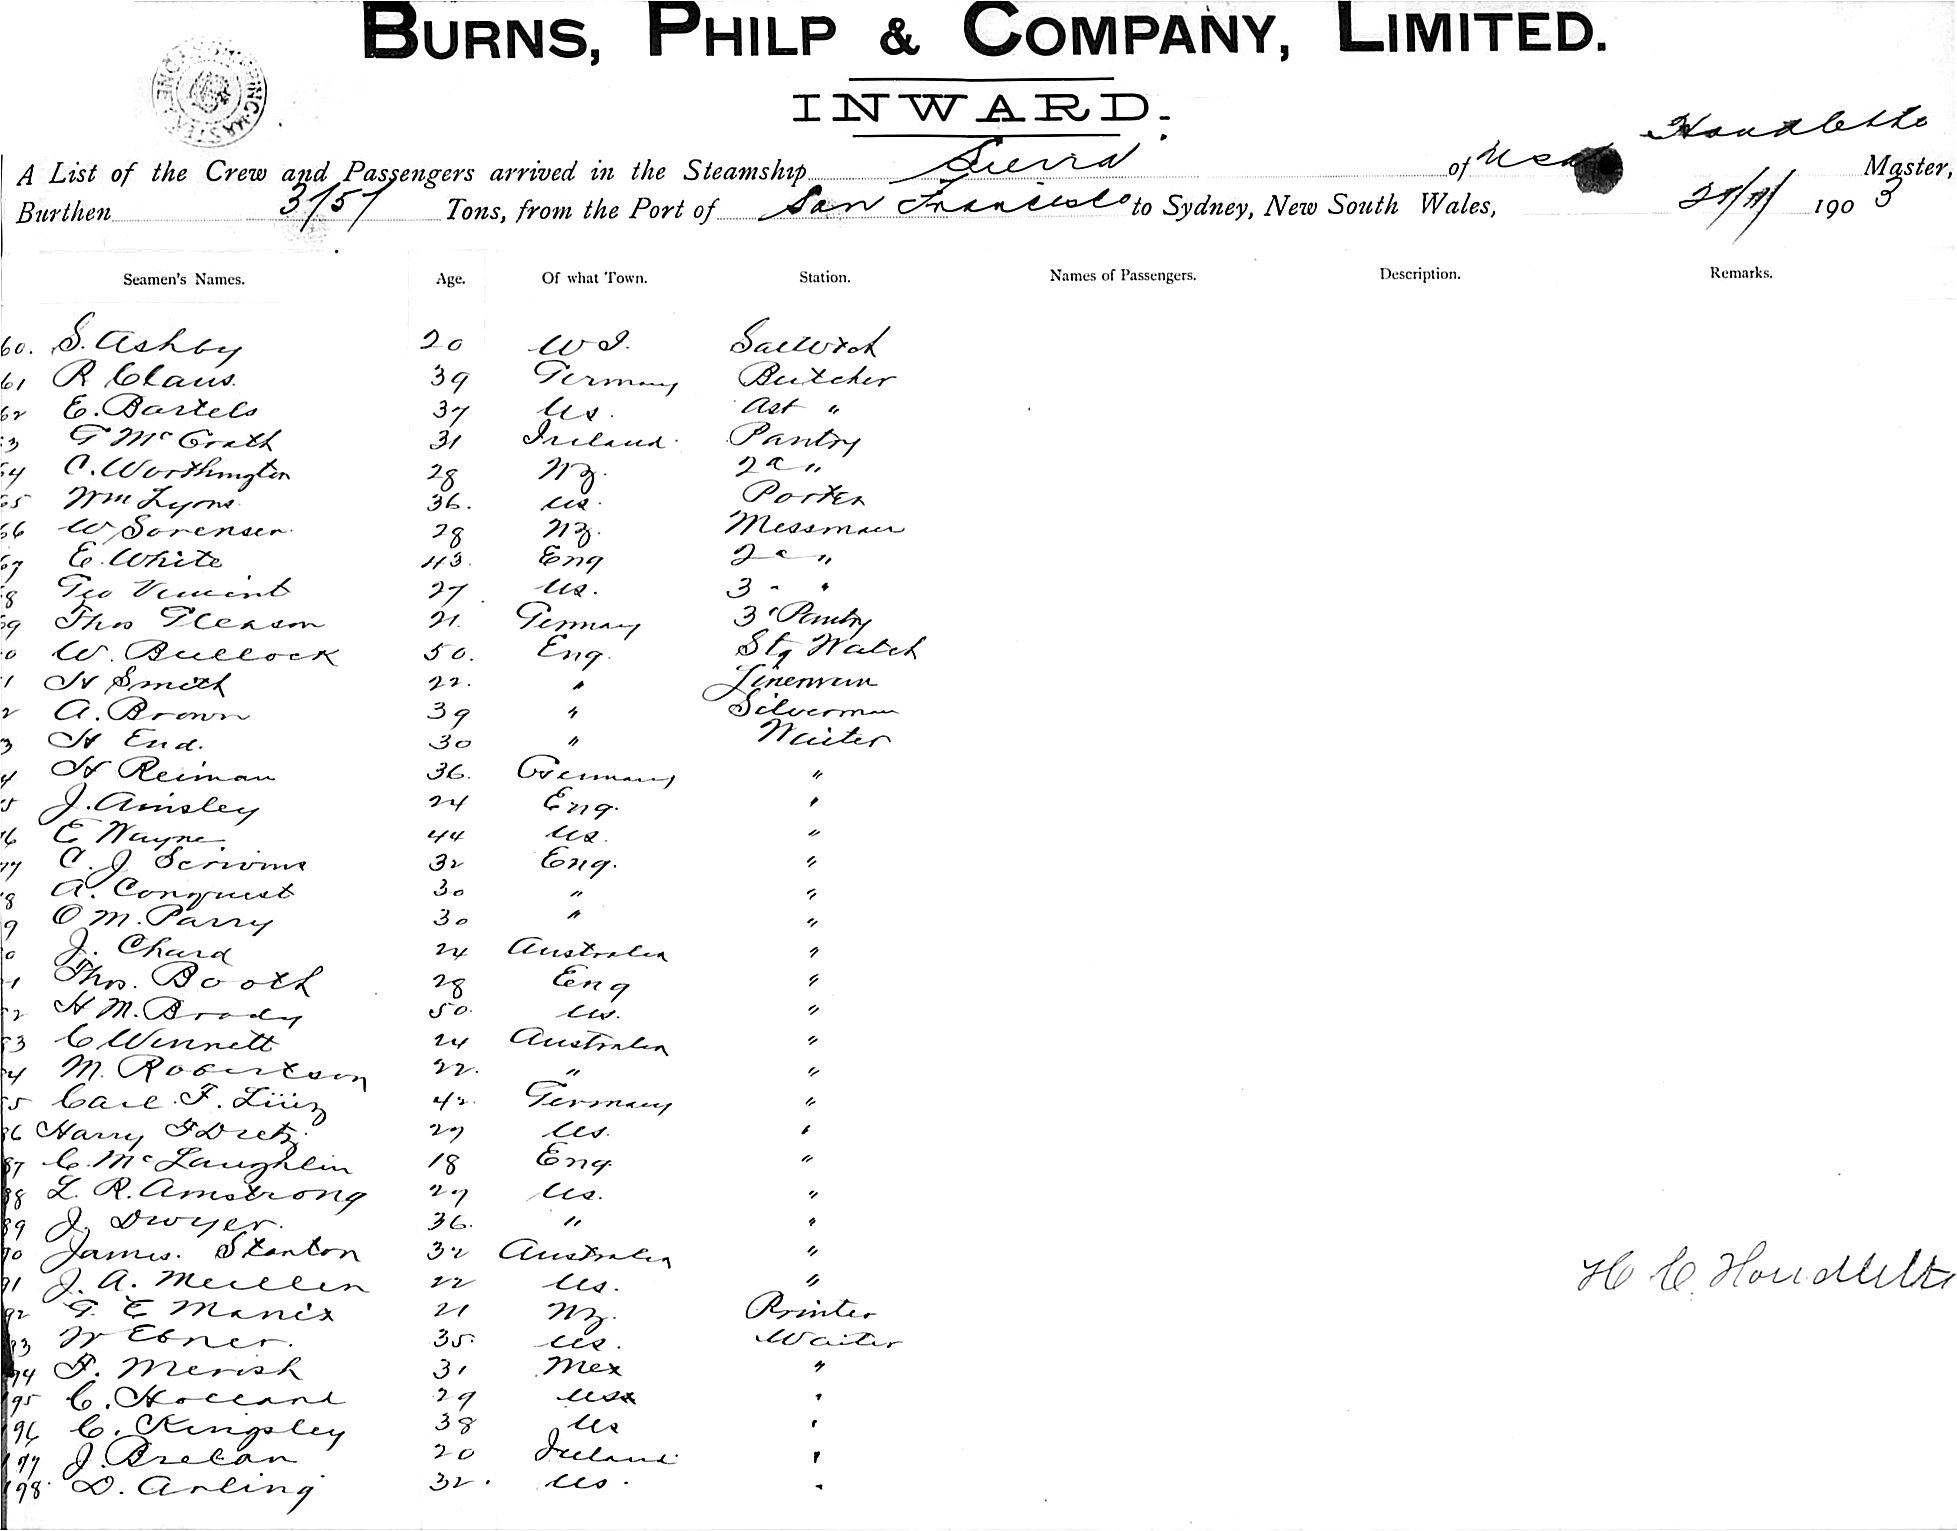 BURNS, PHILP & COMPANY, LIMITED.
INWARD.
Houdlette
A List of the Crew and Passengers arrived in the Steamship Sierra of Master,
Burthen 3151 Tons, from the Port of San Francisco to Sydney, New South Wales, 1903
Seamen's Names. Age. Of what Town. Station. Names of Passengers. Description. Remarks.
60. S. Ashby 20 W I.
61 R Claus. 39 Germany Butcher
62 E. Bartels 37 Us. Ast "
3 G McGrath 31 Ireland. Pantry
64 C. Worthington 28 NZ. 2d "
65 Wm Lyons. 36. us. Porter
66 W Sorensen. 28 NZ. Messman
67 E. White 43. Eng 2d "
8 Geo Vincint 27 Us. 3 - "
69 Thos Gleason 21. Germany 3 Pantry
0 W. Bullock 50. Eng. Stg Watch
1 H Smith 22. " Linenman
2 A. Brown 39 " Silverman
3 H End. 30 " Waiter
4 H Reiman 36. Germany "
5 J. Ainsley 24 Eng. "
6 E Wayne. 44 Us. "
77 C. J Scrivens 32 Eng. "
8 A. Conquest 30 " "
9 O M. Parry 30 " "
0 J. Chard 24 Australia "
1 Thos. Booth 28 Eng "
2 H M. Brady 50. Us. "
83 C Wennett 24 Australia "
4 M. Robertson 22. " "
5 Carl. F. 42. Germany "
86 Harry F Dietz. 27 Us. "
87 C. McLaughlin 18 Eng. "
88 L. R. Amstrong 27 Us. "
89 J. Dwyer. 36. " "
90 James. Stanton 32 Australia "
91 J. A. Meullen 22 Us. "
H C. Houdlette
92 G. E Manix 21 NZ. Printer
93 W Ebner. 35. Us. Waiter
94 F. Merish 31 Mex "
195 C. Holland 29 "
196 C. Kingsley 38 Us "
197 J. Brelan 20 Ireland. "
198. D. Arling 32. Us. "